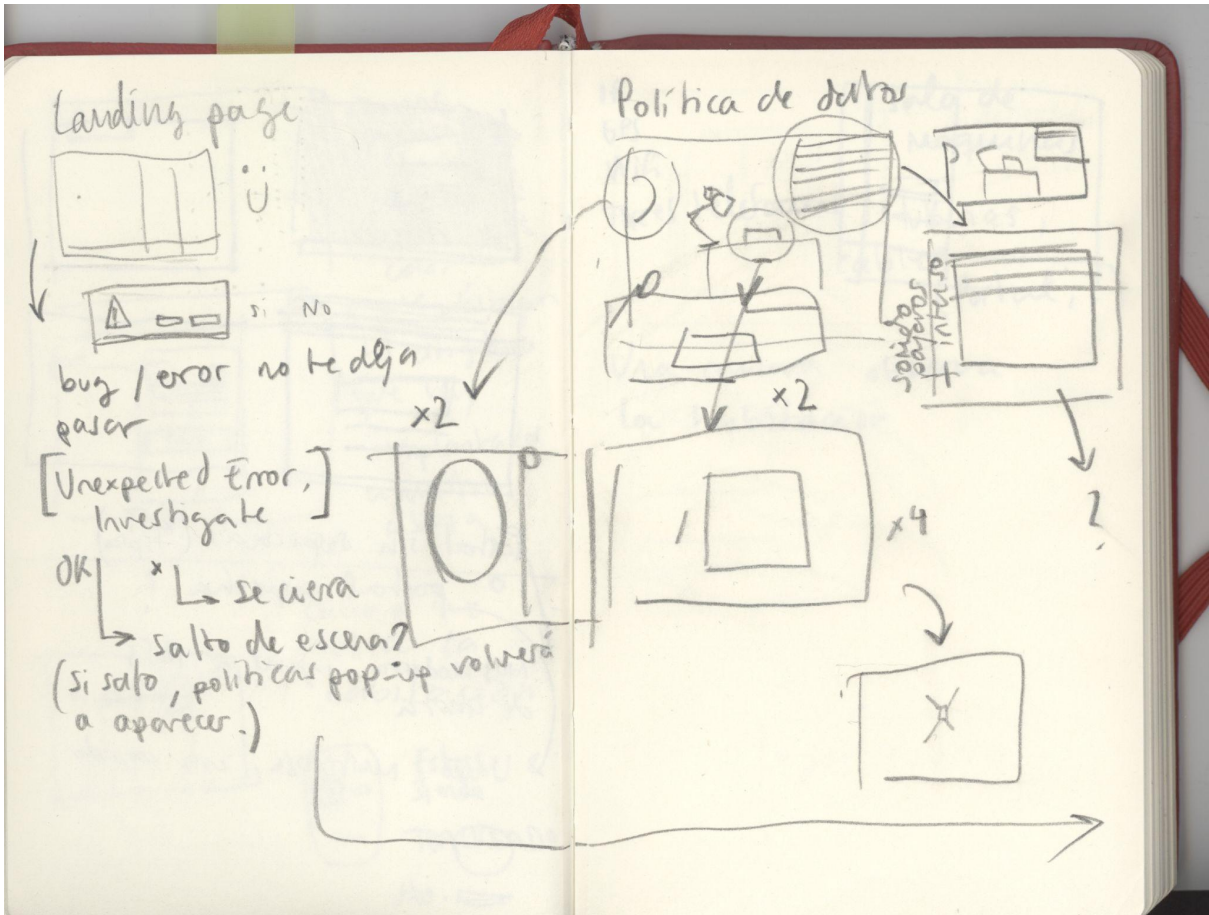 Landing page
si No
bug / error no te deja
pasar
[Unexpected Error,
Investigate]
OK x
se ciera
salto de escena?
(si salto, políticas pop-up volverá
a aparecer.)
Política de datos
x2
x2
x4
sonido
pájaros
intenso
+
?